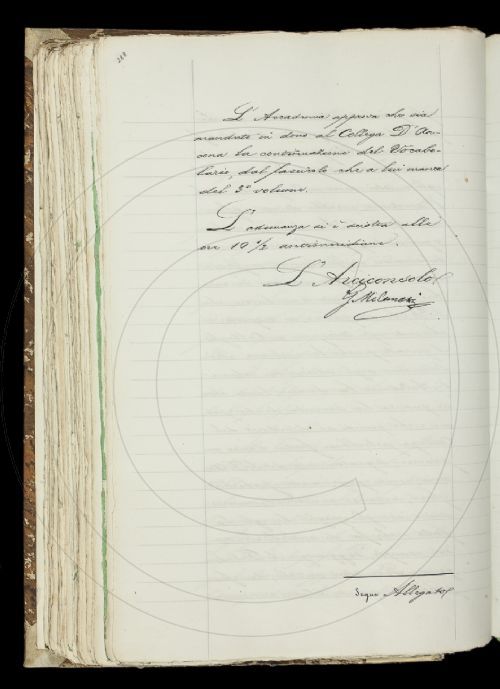 288
L'Accademia approva che sia
mandato in dono al Collega D'An-
cona la continuazione del Vocabo-
lario, dal fascicolo che a lui manca
del 3º volume.
L'adunanza si è sciolta alle
ore 10 1/2 antimeridiane.
L'Arciconsolo
G. Milanesi
Segue Allegato